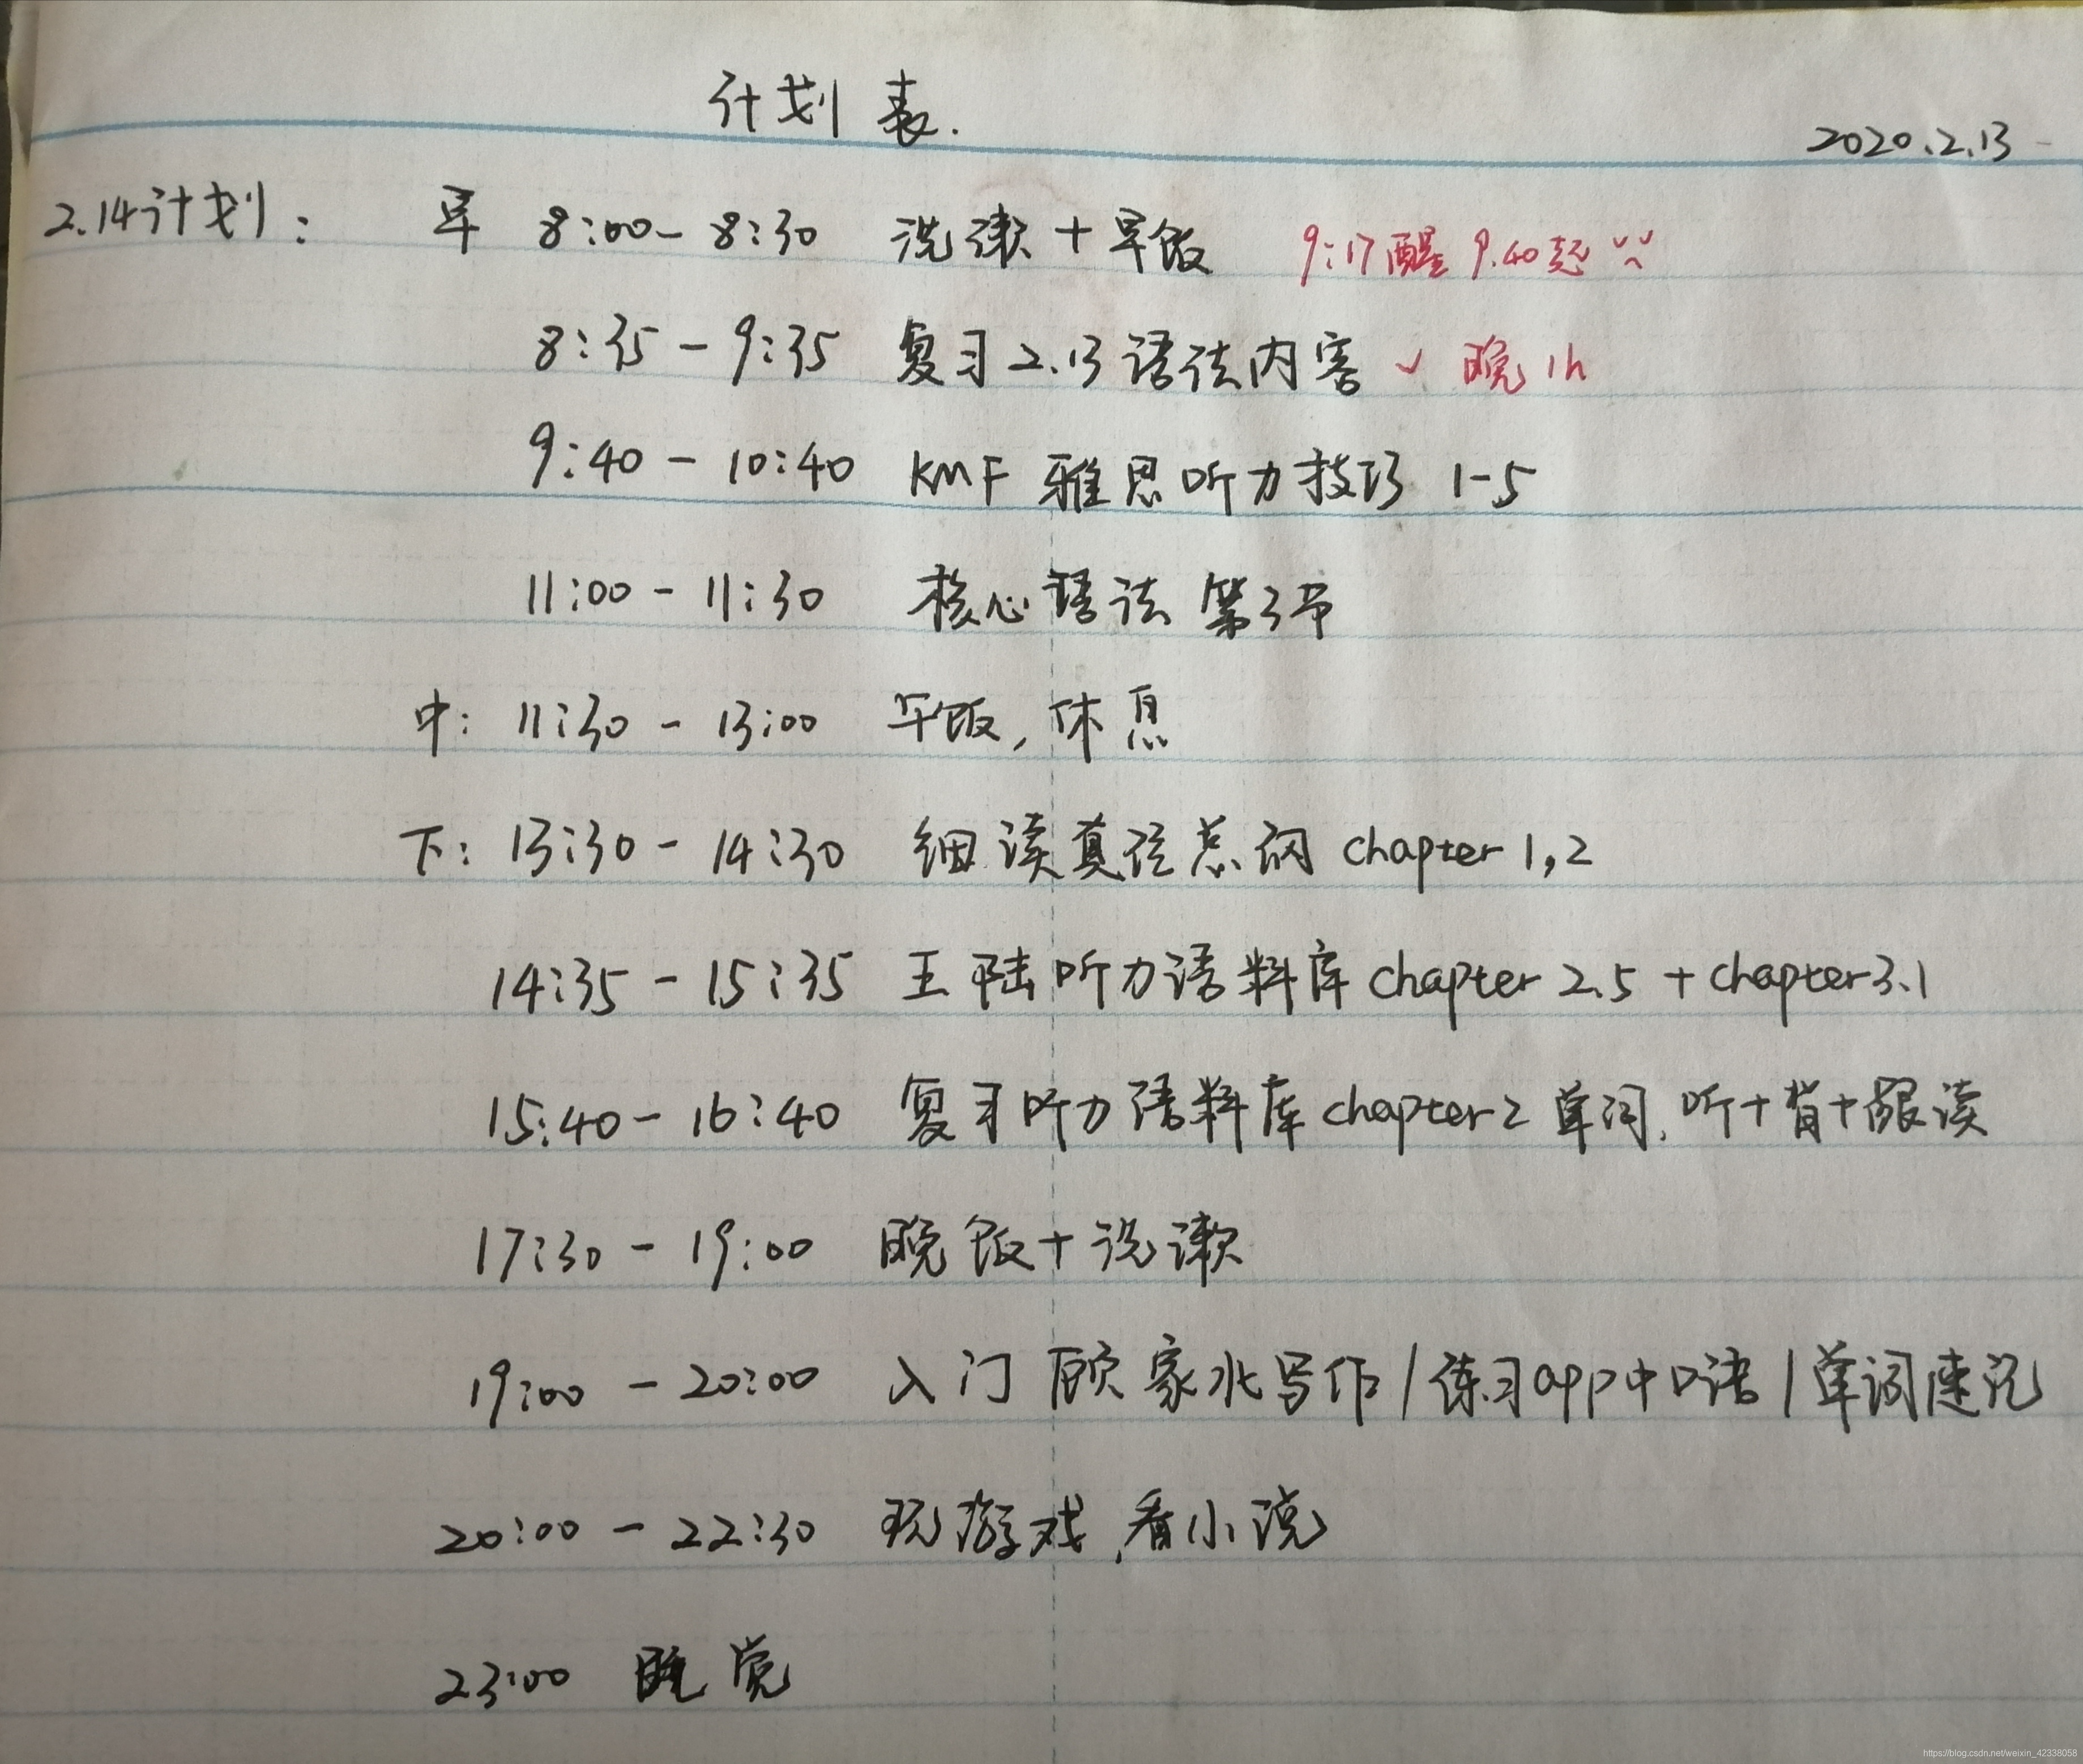 计划表.
2020.2.13
2.14计划: 早 8:00-8:30 洗漱+早饭 9:17醒 9.40起
8:35-9:35 复习2.13语法内容 ✓ 晚1h
9:40-10:40 KMF 雅思听力技巧 1-5
11:00-11:30 核心语法 第3节
中: 11:30-13:00 午饭,休息
下: 13:30-14:30 细读真经总纲 chapter 1,2
14:35-15:35 王陆听力语料库 chapter 2.5 + chapter3.1
15:40-16:40 复习听力语料库 chapter2 单词,听+背+跟读
17:30-19:00 晚饭+洗漱
19:00-20:00 入门顾家北写作/练习app中口语/单词速记
20:00-22:30 玩游戏,看小说
23:00 睡觉
https://blog.csdn.net/weixin_42338058